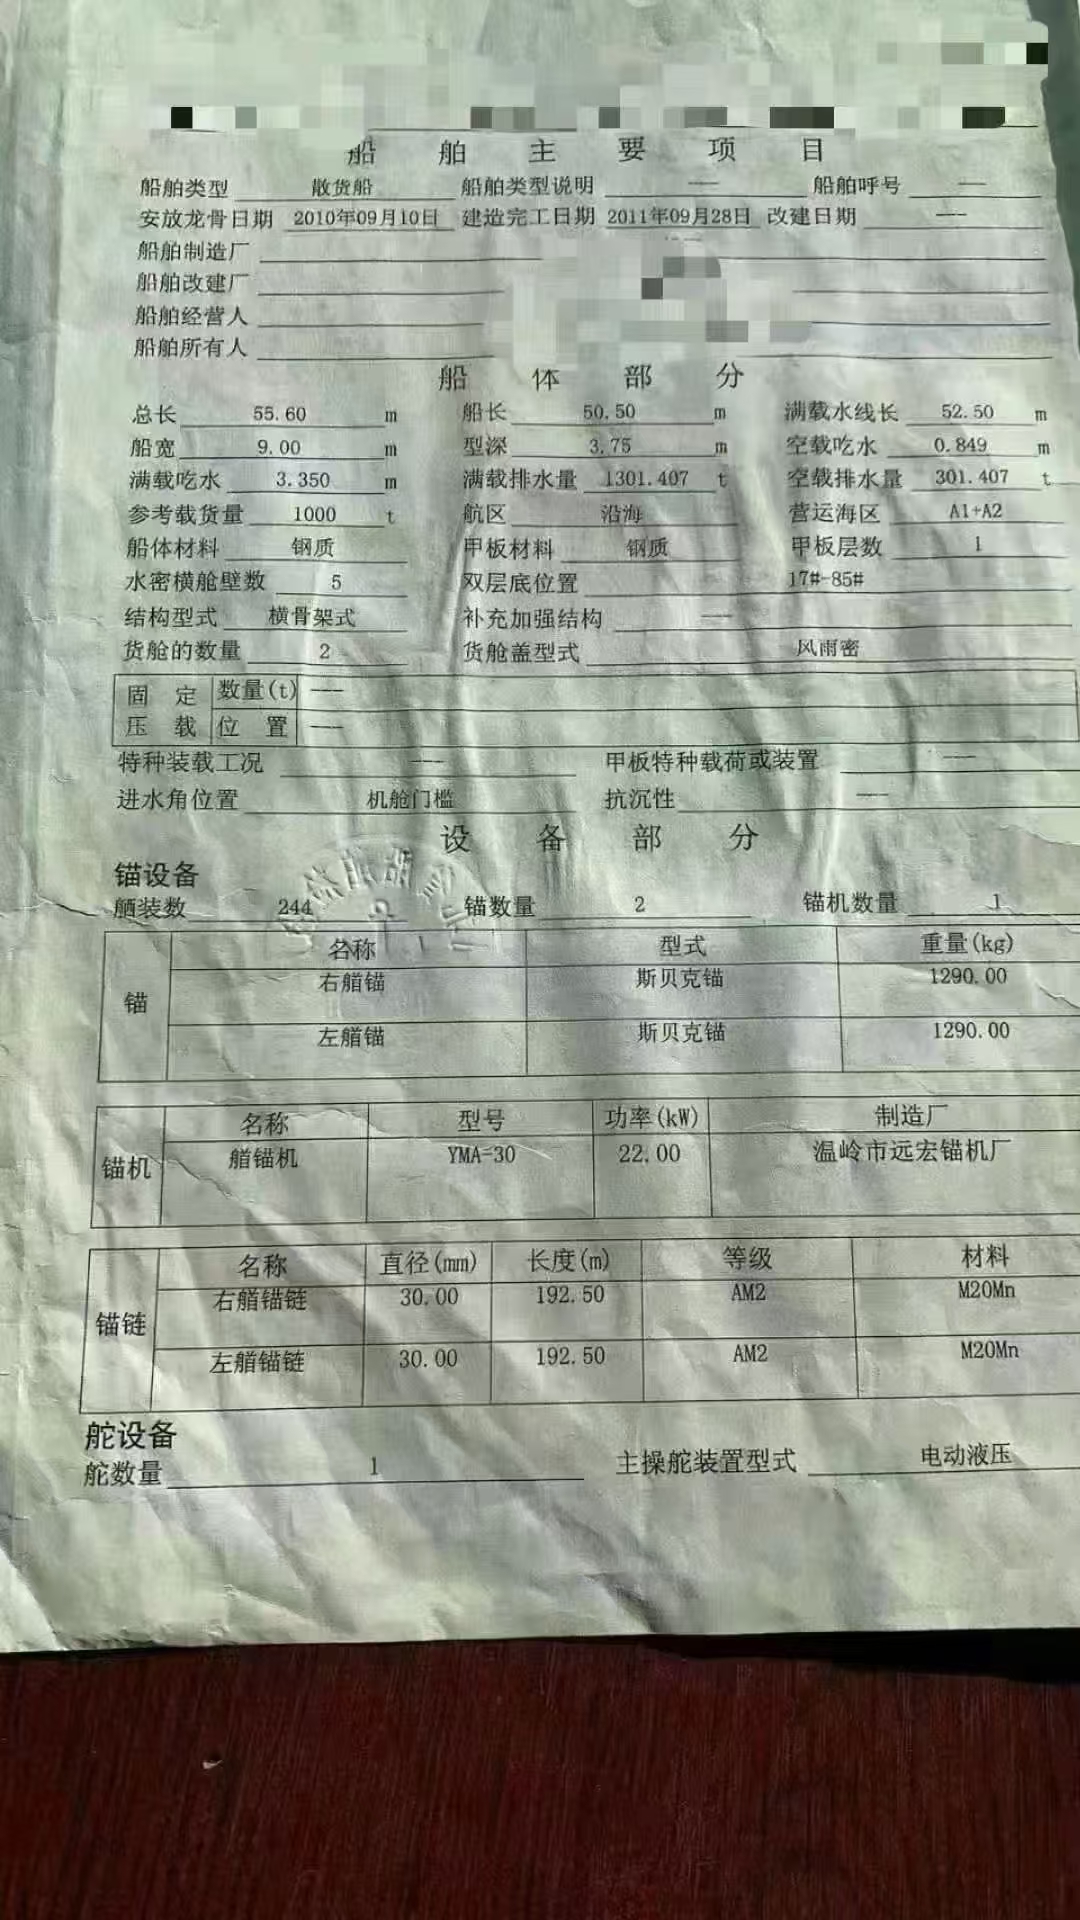 船舶主要项目
船舶类型 散货船 船舶类型说明 --- 船舶呼号 ---
安放龙骨日期 2010年09月10日 建造完工日期 2011年09月28日 改建日期 ---
船舶制造厂
船舶改建厂
船舶经营人
船舶所有人
船体部分
总长 55.60 m 船长 50.50 m 满载水线长 52.50 m
船宽 9.00 m 型深 3.75 m 空载吃水 0.849 m
满载吃水 3.350 m 满载排水量 1301.407 t 空载排水量 301.407 t
参考载货量 1000 t 航区 沿海 营运海区 A1+A2
船体材料 钢质 甲板材料 钢质 甲板层数 1
水密横舱壁数 5 双层底位置 17#-85#
结构型式 横骨架式 补充加强结构 ---
货舱的数量 2 货舱盖型式 风雨密
固定 数量(t) ---
压载 位置 ---
特种装载工况 --- 甲板特种载荷或装置 ---
进水角位置 机舱门槛 抗沉性 ---
设备部分
锚设备
舾装数 244 锚数量 2 锚机数量 1
锚 名称 型式 重量(kg)
右艏锚 斯贝克锚 1290.00
左艏锚 斯贝克锚 1290.00
锚机 名称 型号 功率(kW) 制造厂
艏锚机 YMA=30 22.00 温岭市远宏锚机厂
锚链 名称 直径(mm) 长度(m) 等级 材料
右艏锚链 30.00 192.50 AM2 M20Mn
左艏锚链 30.00 192.50 AM2 M20Mn
舵设备
舵数量 1 主操舵装置型式 电动液压